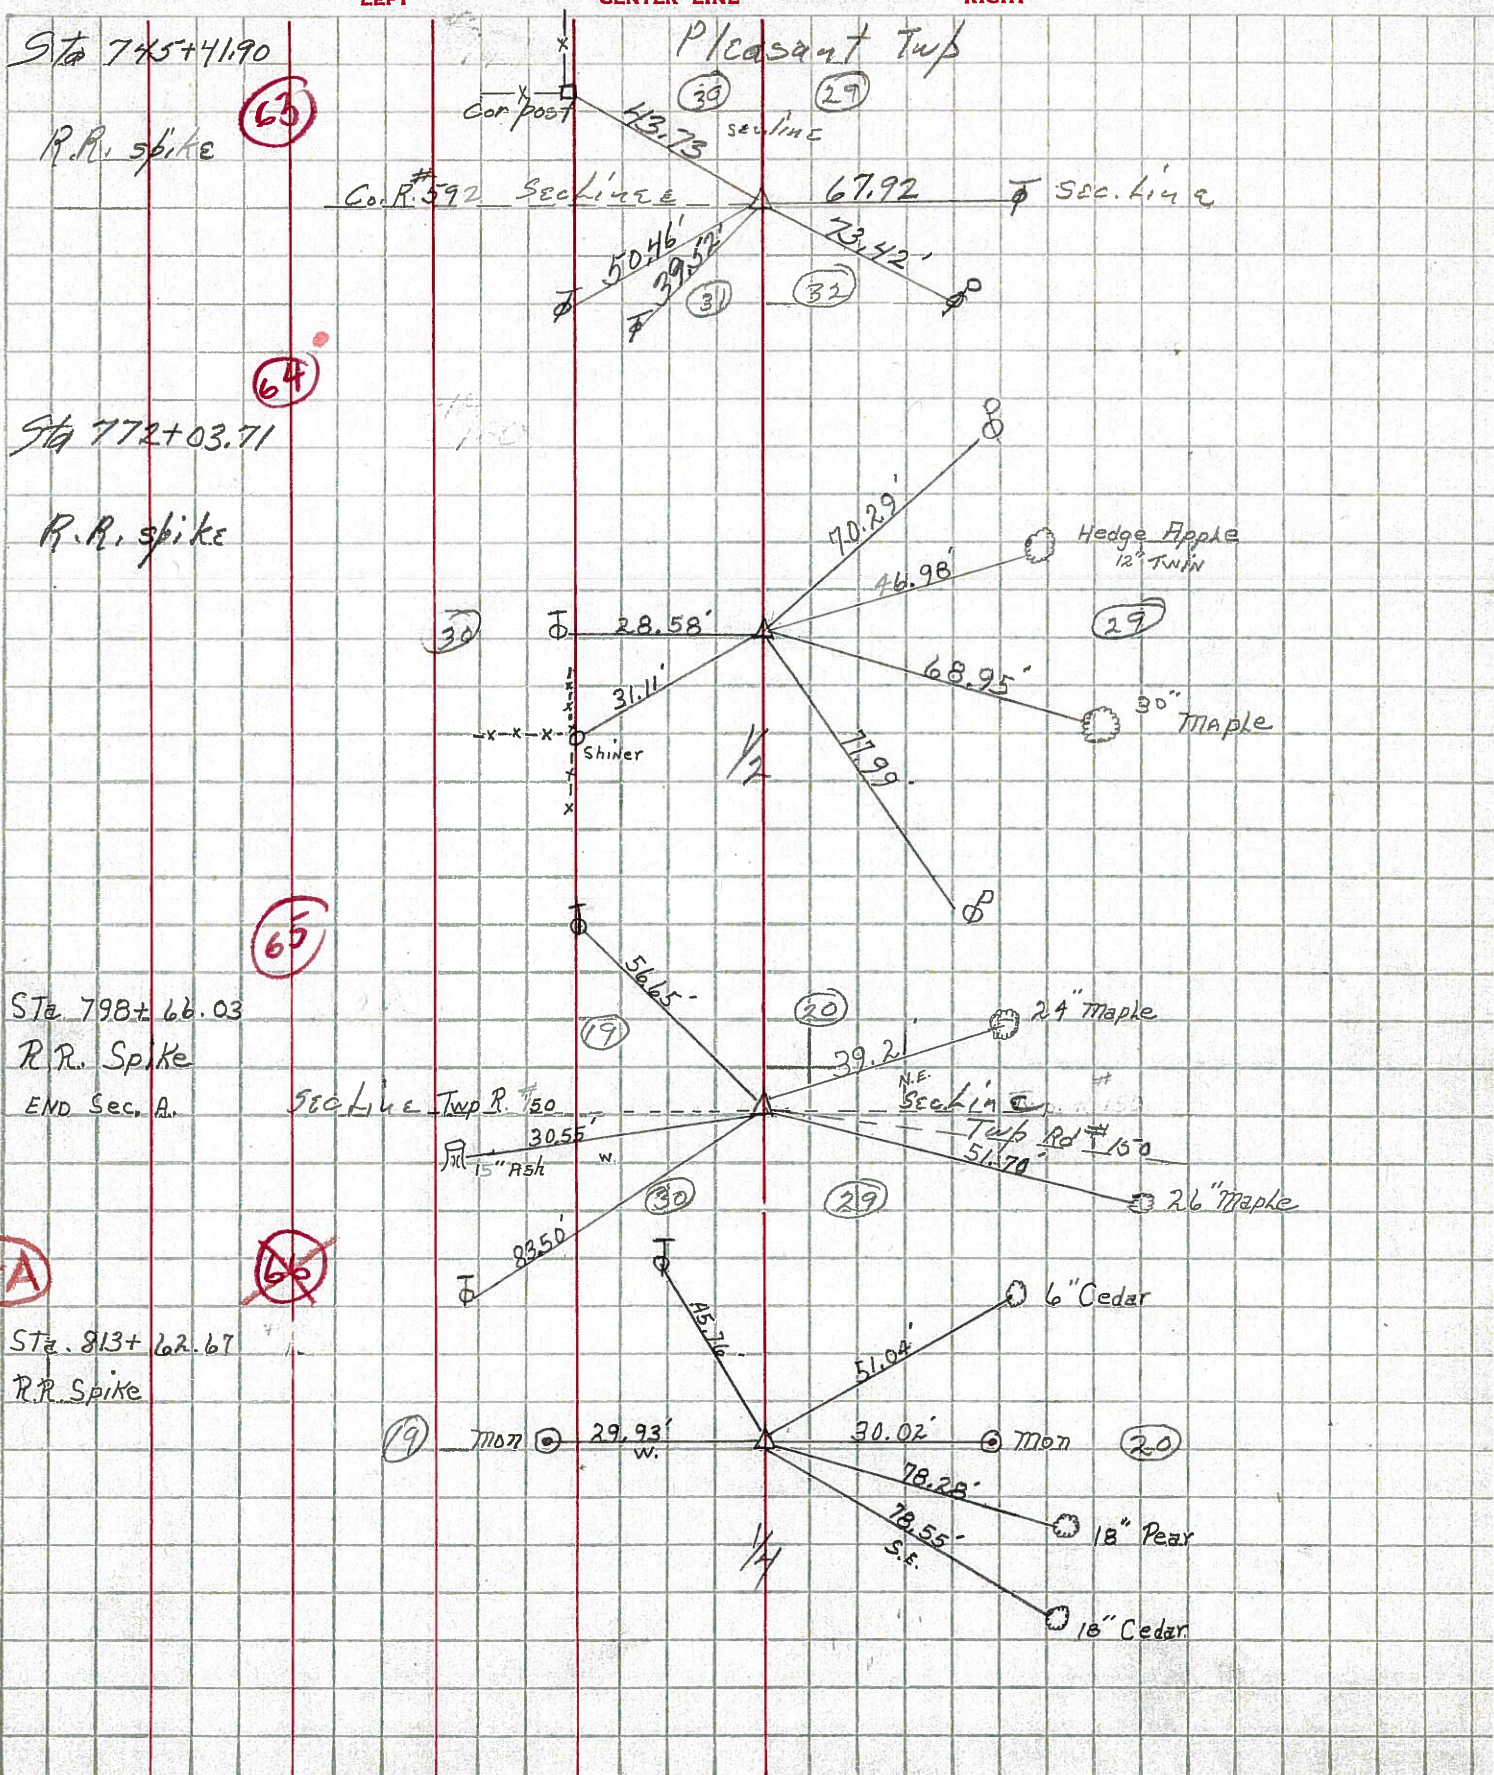 LEFT CENTER LINE RIGHT
Sta 745+41.90
Pleasant Twp
63
30 29
Cor post
43.73
sec line
R.R. spike
Co. R. #592 Sec Line
67.92
Sec. Line
50.46'
39.52'
73.42'
31 32
64
Sta 772+03.71
R.R. spike
70.29'
Hedge Apple
12" TWIN
46.98'
30
28.58'
29
31.11'
68.95'
30" Maple
Shiner
1/2
77.99
65
56.65
Sta 798+66.03
R.R. Spike
END Sec. A.
19
20
24" Maple
39.21'
N.E.
Sec Line Twp R. #50
Sec Line
Twp Rd #150
30.55'
15" Ash
W.
51.70'
26" Maple
30 29
83.50'
A
66
Sta. 813+62.67
R.R. Spike
45.76
6" Cedar
51.04'
19
Mon
29.93'
W.
30.02'
Mon
20
78.28'
18" Pear
78.55'
S.E.
1/4
18" Cedar